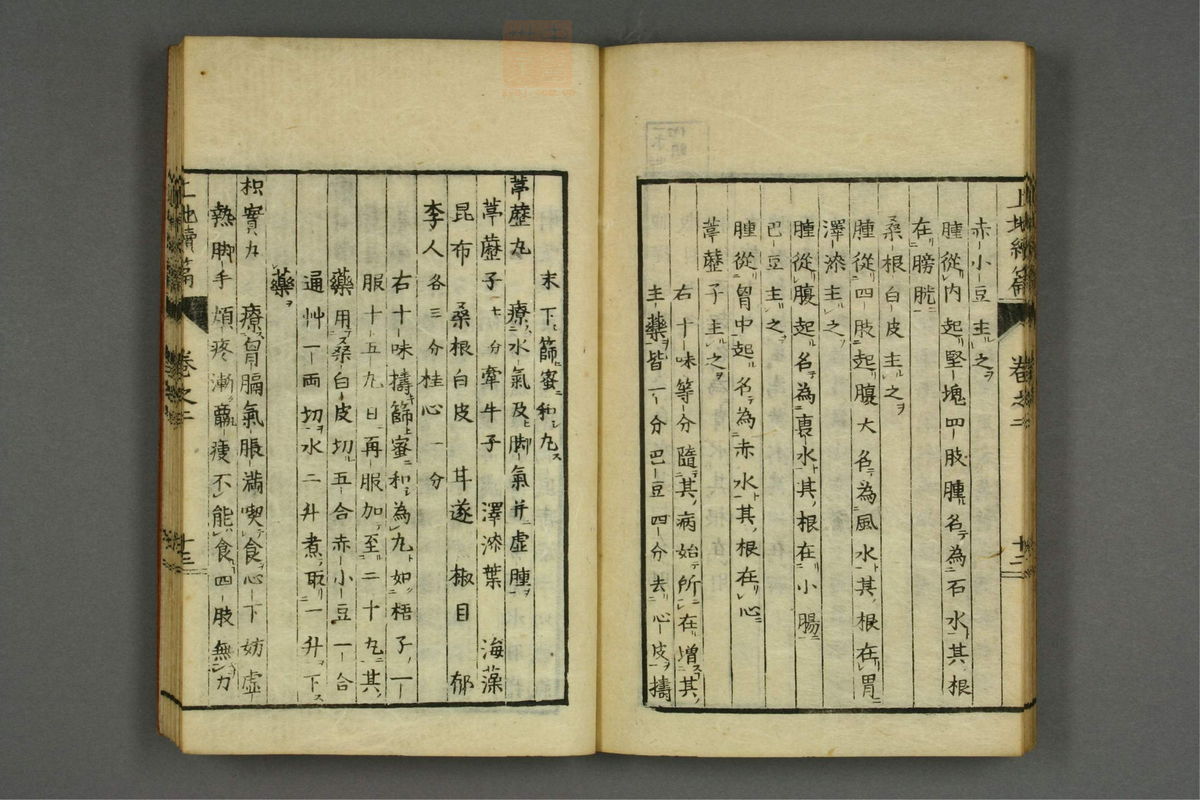 赤小豆主之
腫從內起堅塊四肢腫名為石水其根
在膀胱
桑根白皮主之
腫從四肢起腹大名為風水其根在胃
澤漆主之
腫從腹起名為裏水其根在小腸
巴豆主之
腫從胃中起名為赤水其根在心
葶藶子主之
右十味等分隨其病始所在增其
主藥皆一分巴豆四分去心皮擣
卷之二
十二
末下篩蜜和丸
葶藶丸 療水氣及脚氣并虛腫
葶藶子七分牽牛子 澤漆葉 海藻
昆布 桑根白皮 甘遂 椒目 郁
李人各三分桂心一分
右十味擣篩蜜和為丸如梧子一
服十五九日再服加至二十九其
藥用桑白皮切五合赤小豆一合
通艸一両切水二升煮取一升下
藥
枳實丸 療胃膈氣脹滿喫食心下妨虛
熱脚手煩疼漸羸瘦不能食四肢無力
卷之二
十三